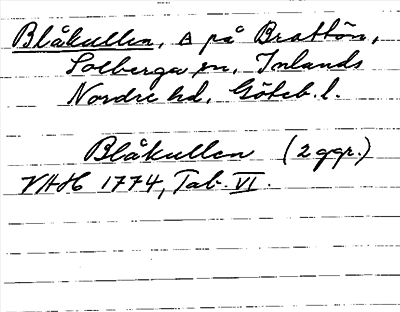 Blåkullen, △ på Brattön,
Solberga sn, Inlands
Nordre hd, Göteb. l.
Blåkullen (2 ggr.)
VAH 1774, Tab. VI.